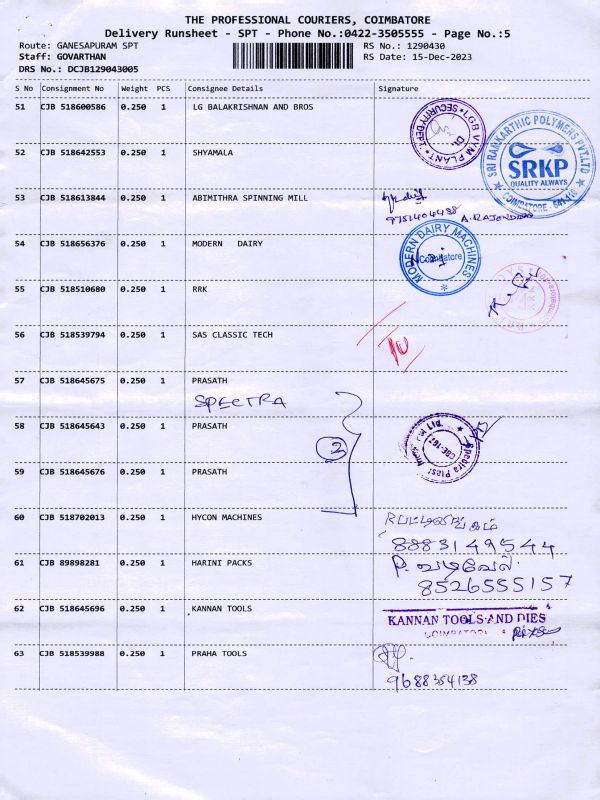 THE PROFESSIONAL COURIERS, COIMBATORE
Delivery Runsheet - SPT - Phone No.:0422-3505555 - Page No.:5
Route: GANESAPURAM SPT RS No.: 1290430
Staff: GOVARTHAN RS Date: 15-Dec-2023
DRS No.: DCJB129043005
S No Consignment No Weight PCS Consignee Details Signature
51 CJB 518600586 0.250 1 LG BALAKRISHNAN AND BROS
LGB VYM PLANT SECURITY DEPT.
SRI RAMKARTHIC POLYMERS PVT.LTD
SRKP
QUALITY ALWAYS
COIMBATORE - 641 110
52 CJB 518642553 0.250 1 SHYAMALA
53 CJB 518613844 0.250 1 ABIMITHRA SPINNING MILL
9751404498 A.RAJENDRAN
54 CJB 518656376 0.250 1 MODERN DAIRY
MODERN DAIRY MACHINES
Coimbatore
55 CJB 518510680 0.250 1 RRK
56 CJB 518539794 0.250 1 SAS CLASSIC TECH
57 CJB 518645675 0.250 1 PRASATH
SPECTRA
58 CJB 518645643 0.250 1 PRASATH
3
Spectra Plast Pvt Ltd.
59 CJB 518645676 0.250 1 PRASATH
60 CJB 518702013 0.250 1 HYCON MACHINES
8883149544
61 CJB 89898281 0.250 1 HARINI PACKS
P. வடிவேல்
8526555157
62 CJB 518645696 0.250 1 KANNAN TOOLS
KANNAN TOOLS AND DIES
COIMBATORE
63 CJB 518539988 0.250 1 PRAHA TOOLS
9688354138